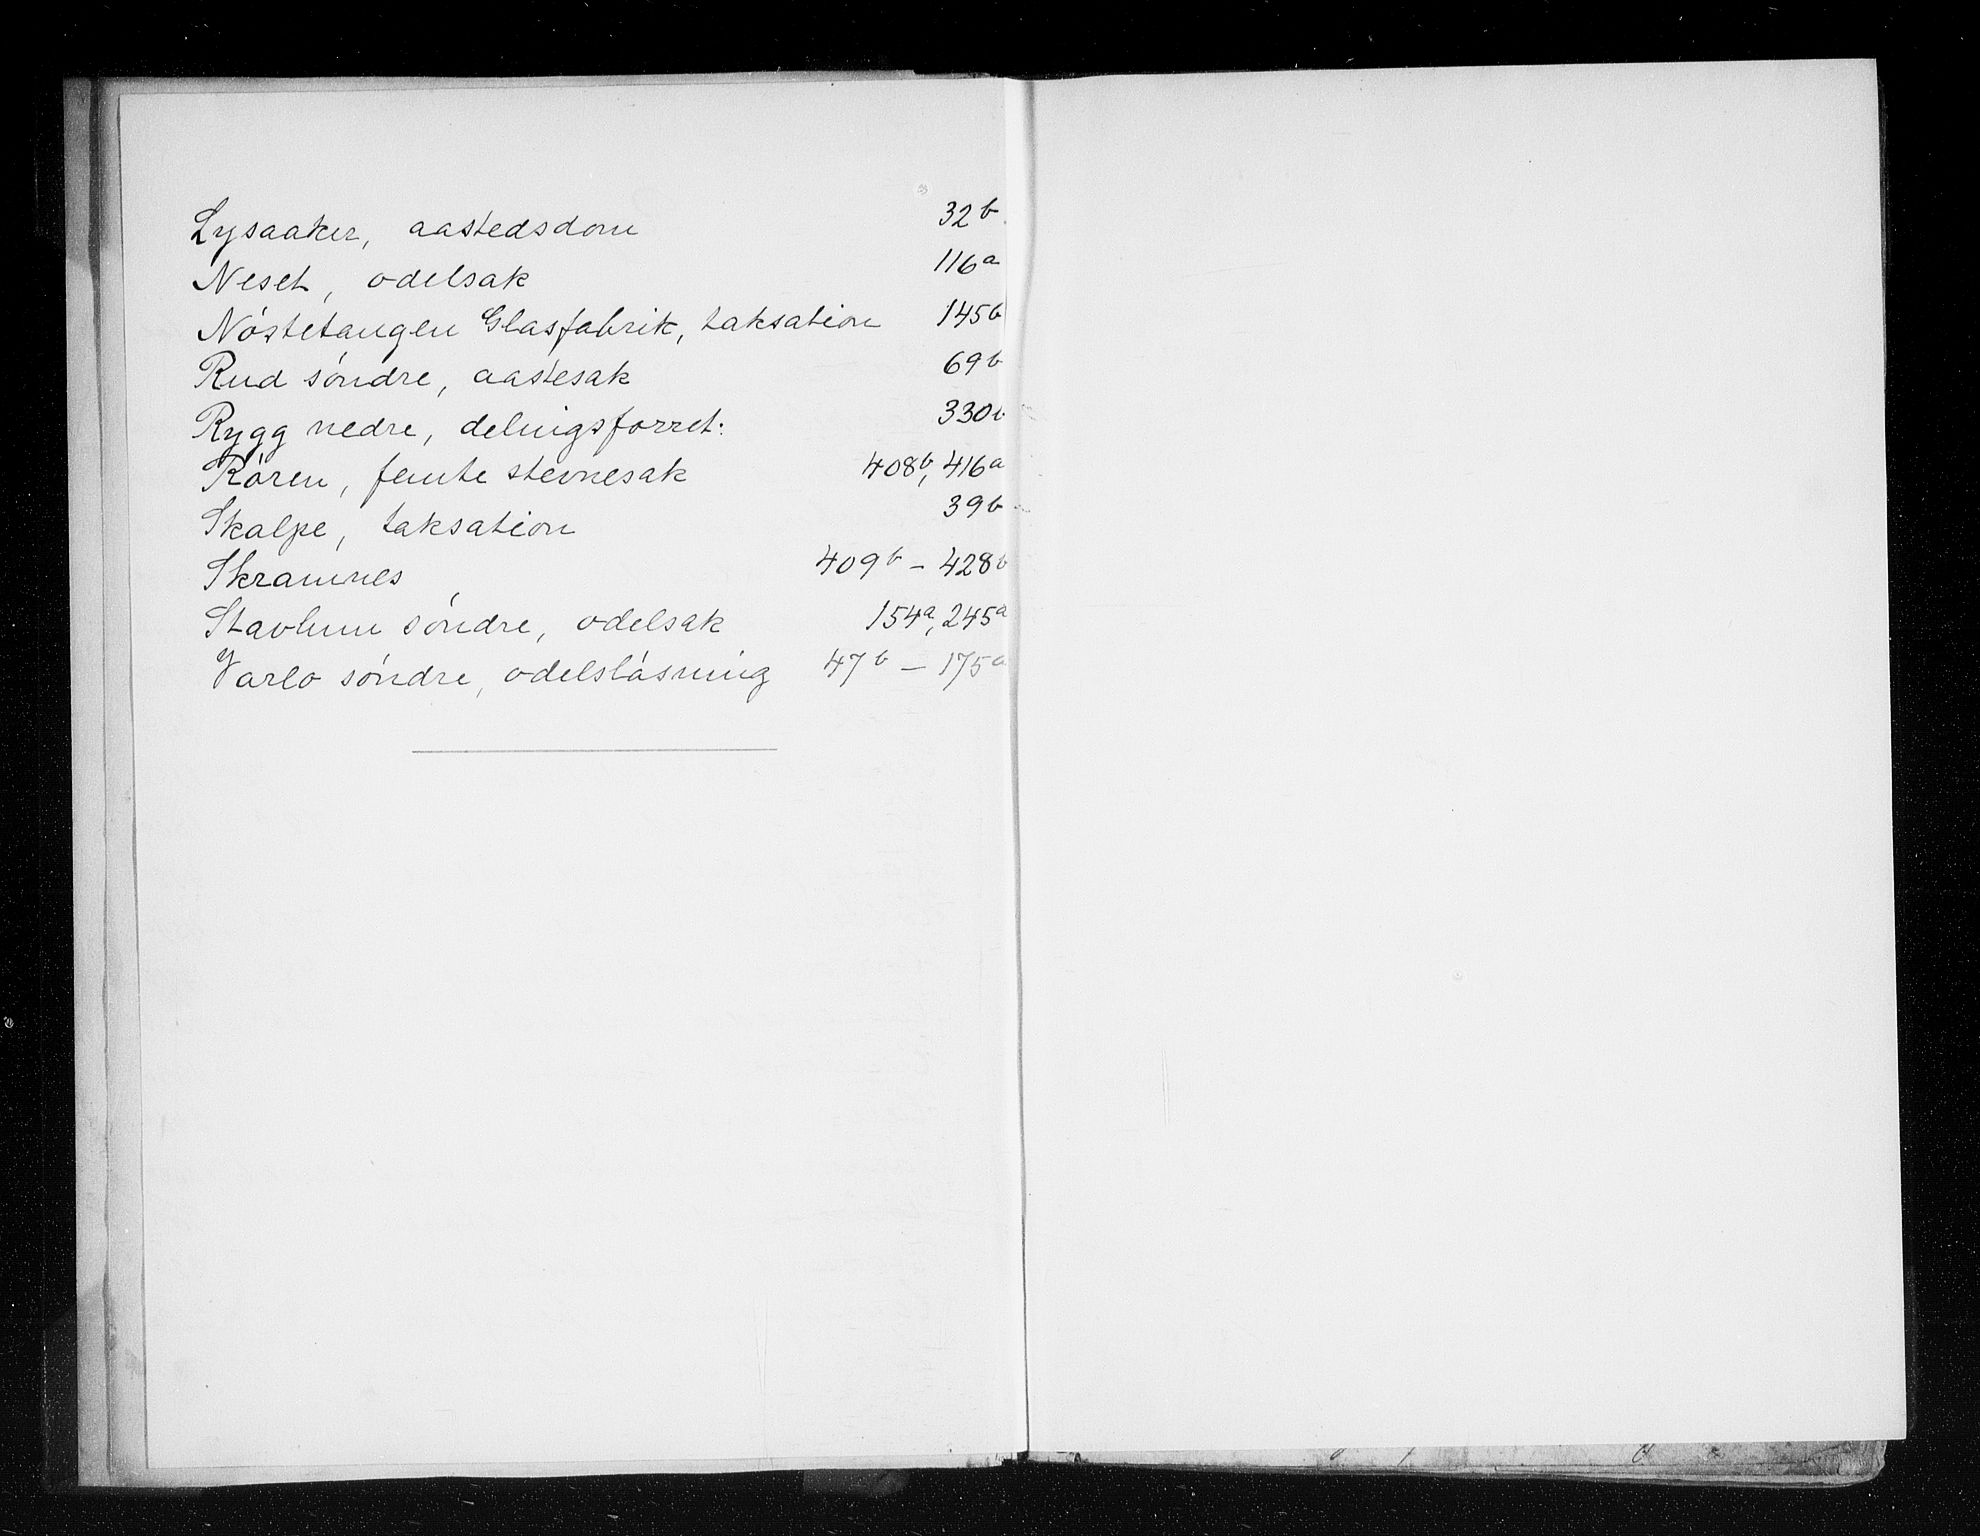 Lysaaker, aastedsdom 32b
Neset, odelsak 116a
Nóstetangen Glasfabrik, taksation 145b
Rud sóndre, aastesak 69b
Rygg nedre, delnigsforret. 330b
Róren, femte stevnesak 408b, 416a
Skalpe, taksation 39b
Skramnes 409b – 428b
Stavlum sóndre, odelsak 154a, 245a
Varlo sóndre, odelslósning 47b – 175a